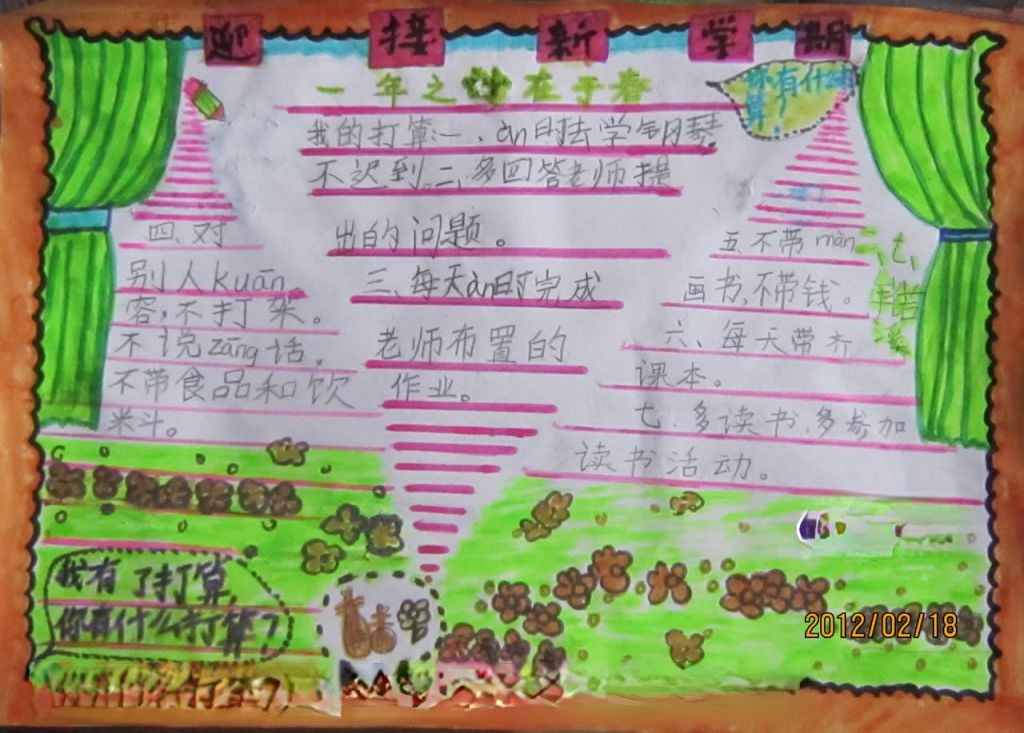 迎接新学期
一年之计在于春
你有什么
算！
我的打算：一、àn时去学钢琴
不迟到。二、多回答老师提
出的问题。
三、每天àn时完成
老师布置的
作业。
四、对
别人kuān
容，不打架。
不说zāng话，
不带食品和饮
米斗。
五、不带màn
画书，不带钱。
六、每天带齐
课本。
七、多读书，多参加
读书活动。
我有了打算，
你有什么打算？
2012/02/18